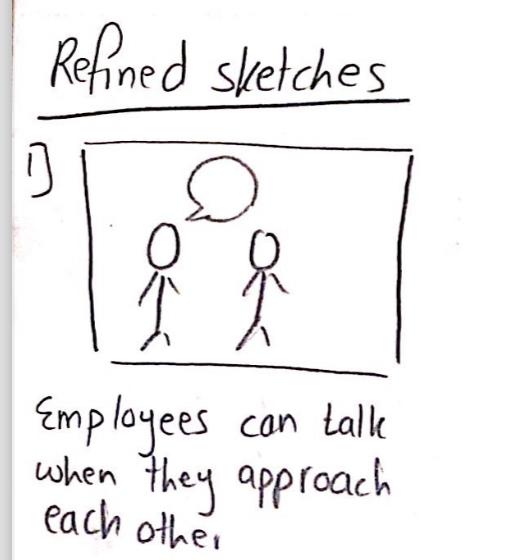 Refined sketches
1)
Employees can talk
when they approach
each other